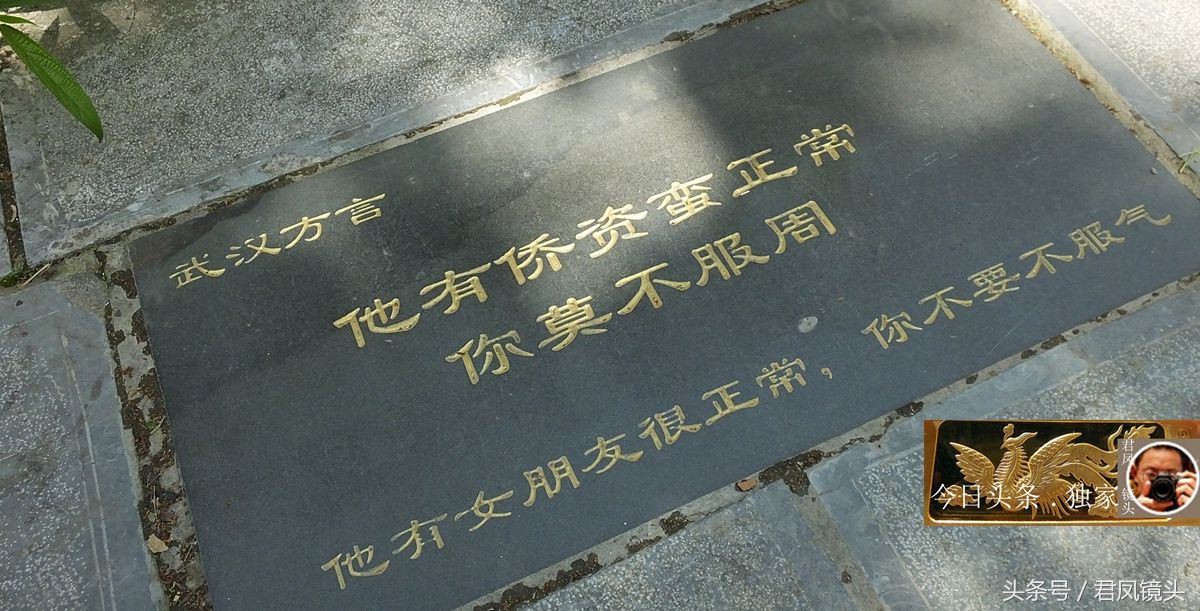 武汉方言
他有侨资蛮正常
你莫不服周
他有女朋友很正常，你不要不服气
君凤
镜头
今日头条．独家
头条号 / 君凤镜头